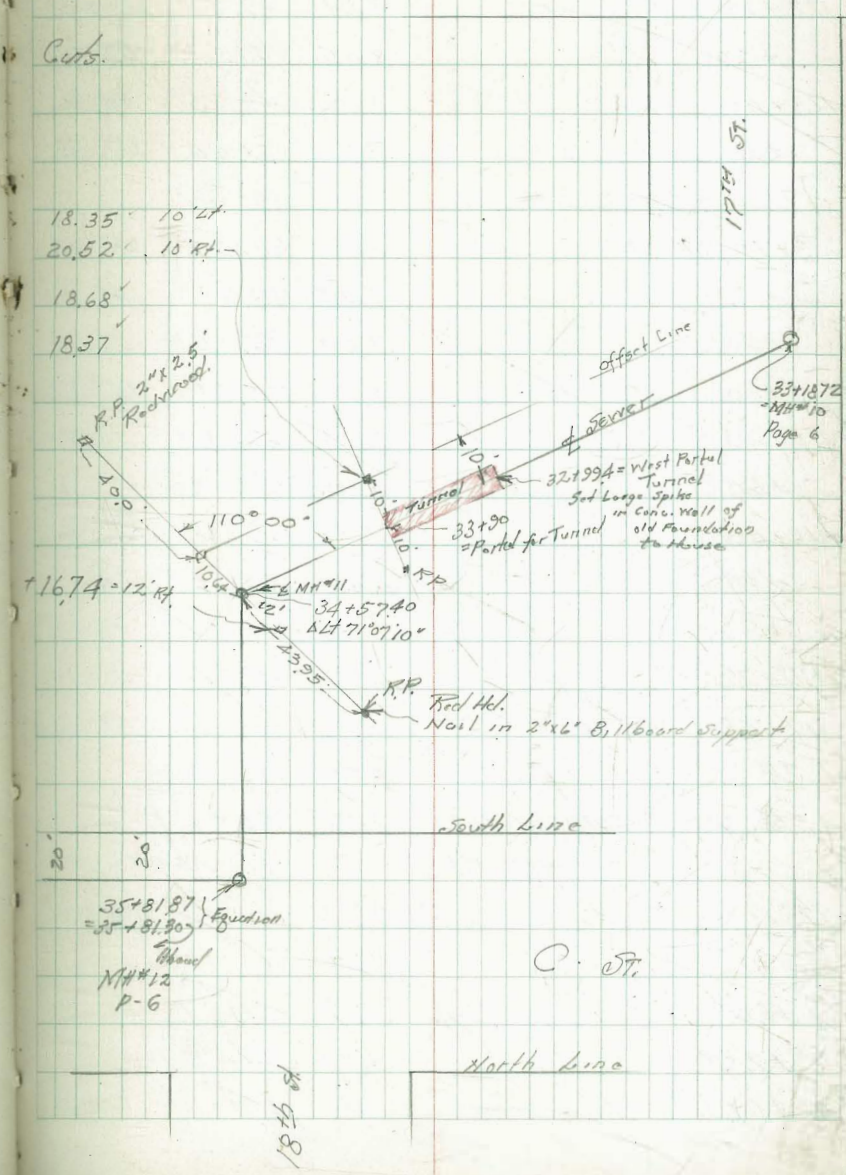 Cuts.
17TH ST.
18.35 10' Lt.
20.52 10' Rt.
18.68
18.37
R.P. 2"x2.5'
Redwood.
offset Line
33+1872
=MH#10
Page 6
℄ Sewer
40.0
10'
32+994 = West Portal
Tunnel
Set Large Spike
in Conc. Wall of
old Foundation
to House
Tunnel
10'
110° 00'
33+90
=Portal for Tunnel
10'
RP
10.64
+16.74 = 12' Rt.
℄ MH#11
12'
34+57.40
Δ Lt 71°07'10"
43.95
R.P.
Red Hd.
Nail in 2"x6" Billboard Support
South Line
20'
20'
35+81.87
=35+81.30 } Equation
Ahead
MH#12
P-6
C. ST.
North Line
18th St